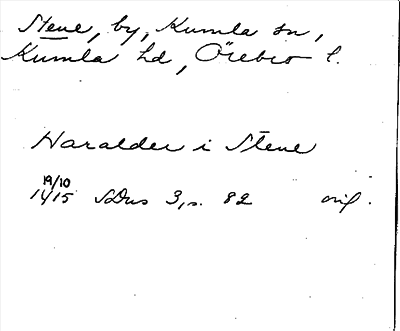 Stene, by, Kumla sn,
Kumla hd, Örebro l.
Haralder i Stene
19/10
1415 SDns 3, s. 82 orig.